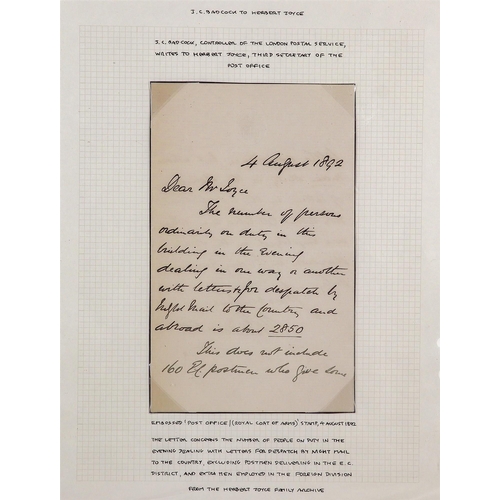 J.C. BADCOCK TO HERBERT JOYCE
J.C. BADCOCK, CONTROLLER OF THE LONDON POSTAL SERVICE,
WRITES TO HERBERT JOYCE, THIRD SECRETARY OF THE
POST OFFICE
4 August 1892
Dear Mr Joyce
The number of persons
ordinarily on duty in this
building in the Evening
dealing in one way or another
with letters &c for despatch by
Night Mail to the Country and
abroad is about 2850
This does not include
160 EC postmen who give some
EMBOSSED 'POST OFFICE / (ROYAL COAT OF ARMS)' STAMP, 4 AUGUST 1892
THE LETTER CONCERNS THE NUMBER OF PEOPLE ON DUTY IN THE
EVENING DEALING WITH LETTERS FOR DESPATCH BY NIGHT MAIL
TO THE COUNTRY, EXCLUDING POSTMEN DELIVERING IN THE E.C.
DISTRICT, AND EXTRA MEN EMPLOYED IN THE FOREIGN DIVISION
FROM THE HERBERT JOYCE FAMILY ARCHIVE